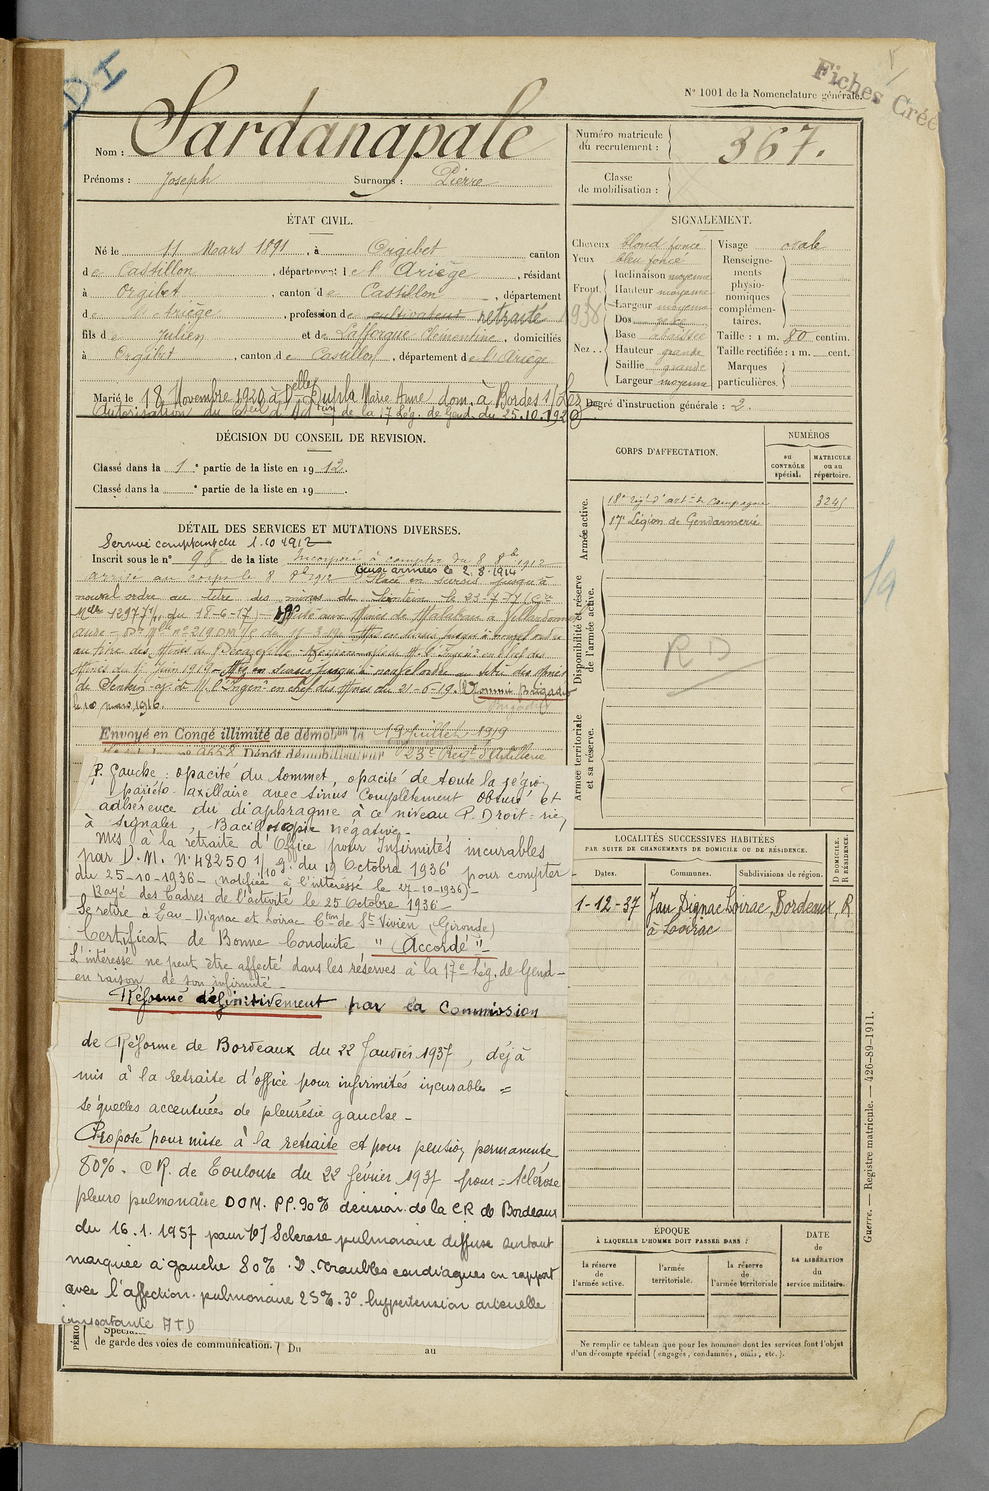 DI
Fiches Créé
N° 1001 de la Nomenclature générale.
Nom : Sardanapale
Prénoms : Joseph Surnoms : Pierre
Numéro matricule du recrutement : 367.
Classe de mobilisation :
ÉTAT CIVIL.
Né le 11 Mars 1891, à Orgibet canton
de Castillon, département de l'Ariège, résidant
à Orgibet, canton de Castillon, département
de l'Ariège, profession de cultivateur retraité 1938
fils de Julien et de Lafforgue Clémentine, domiciliés
à Orgibet, canton de Castillon, département de l'Ariège
Marié le 18 Novembre 1920 à Delle Dupla Marie Anne dom. à Bordes s/ Lez
autorisation du Conseil d'Adtion de la 17e Lég. de Gend. du 25.10.1920
SIGNALEMENT.
Cheveux blond foncé
Yeux bleu foncé
Front. Inclinaison moyenne
Hauteur moyenne
Largeur moyenne
Nez . . Dos
Base abaissée
Hauteur grande
Saillie grande
Largeur moyenne
Visage ovale
Renseignements physionomiques complémentaires.
Taille : 1 m. 80 centim.
Taille rectifiée : 1 m. cent.
Marques particulières.
Degré d'instruction générale : 2.
DÉCISION DU CONSEIL DE REVISION.
Classé dans la 1e partie de la liste en 1912.
Classé dans la e partie de la liste en 19 .
DÉTAIL DES SERVICES ET MUTATIONS DIVERSES.
Service comptant du 1.10.1912
Inscrit sous le n° 98 de la liste Incorporé à compter du 8 8bre 1912
arrivé au corps le 8 8bre 1912 Aux armées le 2.8.1914 Placé en sursis jusqu'à
nouvel ordre au titre des mines de Sentein le 23-7-17
du 18-6-17) aux Mines de
Aure
au titre des Mines de Decazeville
Mines du 1er Juin 1919 - Mis en sursis jusqu'à nouvel ordre au titre des Mines
de Sentein - av. de M. l'Ingenr en chef des Mines du 21-6-19. Nommé Brigadier
le 10 mars 1916.
Envoyé en Congé illimité de démobon le 19 Juillet 1919
Dépôt démobilisateur 23e Régt d'Artillerie
P. Gauche : opacité du sommet, opacité de toute la région
pariéto-axillaire avec sinus complètement obscur et
adhérence du diaphragme à ce niveau P. Droit : rien
à signaler, Bacilloscopie négative -
Mis à la retraite d'Office pour Infirmités incurables
par D.M. N° 48250 1/10 g. du 19 Octobre 1936 pour compter
du 25-10-1936 - (notifiée à l'intéressé le 27-10-1936) -
Rayé des Cadres de l'activité le 25 Octobre 1936 -
Se retire à Jau-Dignac et Loirac Cton de St Vivien (Gironde)
Certificat de Bonne Conduite "Accordé" -
L'intéressé ne peut être affecté dans les réserves à la 17e Lég. de Gend -
en raison de son infirmité -
Réformé définitivement par la Commission
de Réforme de Bordeaux du 22 Janvier 1937, déjà
mis à la retraite d'office pour infirmités incurables =
séquelles accentuées de pleurésie gauche -
Proposé pour mise à la retraite et pour pension permanente
80%. CR. de Toulouse du 22 février 1937 pour = Sclérose
pleuro pulmonaire DOM. PP. 90% décision de la CR de Bordeaux
du 16.1.1957 pour 1°/ Sclérose pulmonaire diffuse surtout
marquée à gauche 80%. 2°. troubles cardiaques en rapport
avec l'affection pulmonaire 25%. 3°. hypertension artérielle
importante ATD
de garde des voies de communication. Du au
CORPS D'AFFECTATION.
NUMÉROS
au CONTRÔLE spécial.
MATRICULE ou au répertoire.
Armée active.
18e régt d'artie de Campagne 3245
17e Légion de Gendarmerie
Disponibilité et réserve de l'armée active.
RD
Armée territoriale et sa réserve.
LOCALITÉS SUCCESSIVES HABITÉES
PAR SUITE DE CHANGEMENTS DE DOMICILE OU DE RÉSIDENCE.
Dates. Communes. Subdivisions de région. D DOMICILE. R RÉSIDENCE.
1-12-37 Jau Dignac Loirac Bordeaux R
à Loirac
ÉPOQUE
À LAQUELLE L'HOMME DOIT PASSER DANS :
la réserve de l'armée active.
l'armée territoriale.
la réserve de l'armée territoriale
DATE de LA LIBÉRATION du service militaire.
Ne remplir ce tableau que pour les hommes dont les services font l'objet
d'un décompte spécial (engagés, condamnés, omis, etc.).
Guerre. — Registre matricule. — 426-89-1911.